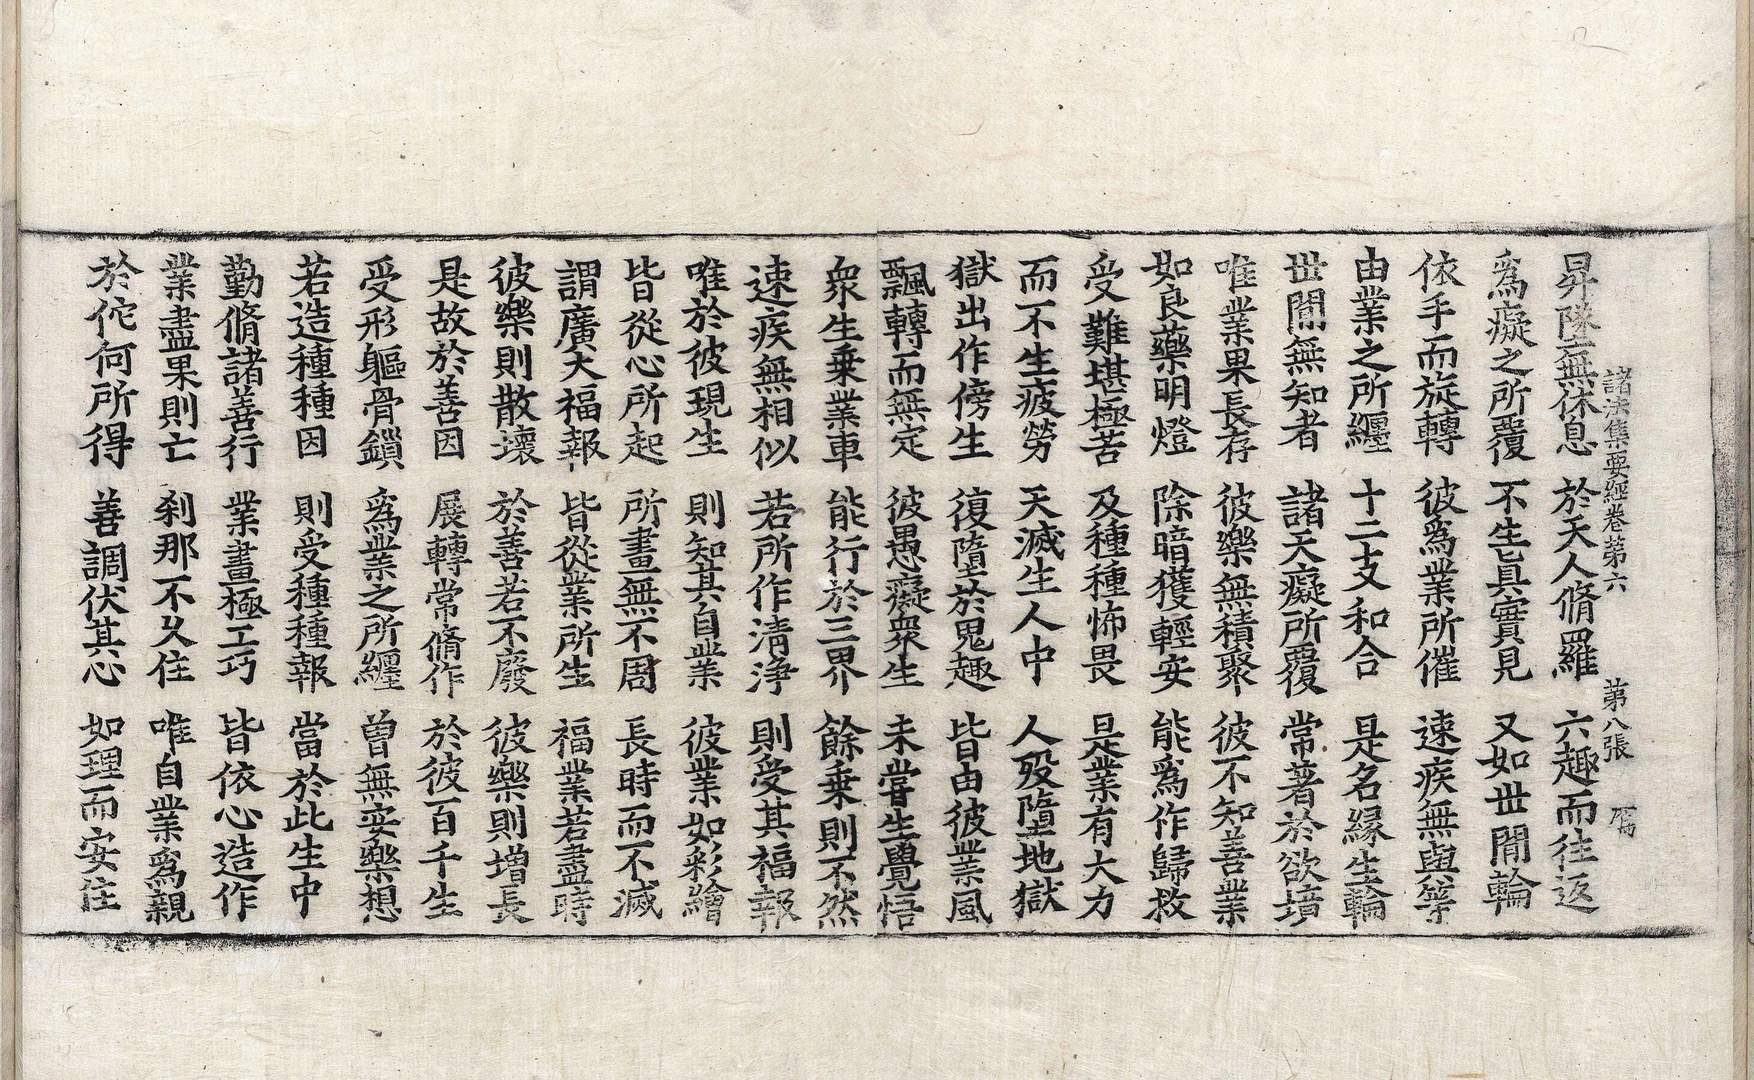 諸法集要經卷第六　第八張　
昇墜無休息　於天人脩羅　六趣而往返
爲癡之所覆　不生眞實見　又如世閒輪
依手而旋轉　彼爲業所催　速疾無與等
由業之所纏　十二支和合　是名緣生輪
世閒無知者　諸天癡所覆　常著於欲境
唯業果長存　彼樂無積聚　彼不知善業
如良藥明燈　除暗獲輕安　能爲作歸救
受難堪極苦　及種種怖畏　是業有大力
而不生疲勞　天滅生人中　人歿墮地獄
獄出作傍生　復墮於鬼趣　皆由彼業風
飄轉而無定　彼愚癡衆生　未甞生覺悟
衆生乗業車　能行於三界　餘乗則不然
速疾無相似　若所作清淨　則受其福報
唯於彼現生　則知其自業　彼業如彩繪
皆從心所起　所畫無不周　長時而不滅
謂廣大福報　皆從業所生　福業若盡時
彼樂則散壞　於善若不廢　彼樂則增長
是故於善因　展轉常脩作　於彼百千生
受形軀骨鎖　爲業之所纏　曾無妄樂想
若造種種因　則受種種報　當於此生中
勤脩諸善行　業畫極工巧　皆依心造作
業盡果則亡　刹那不久住　唯自業爲親
於佗何所得　善調伏其心　如理而安住